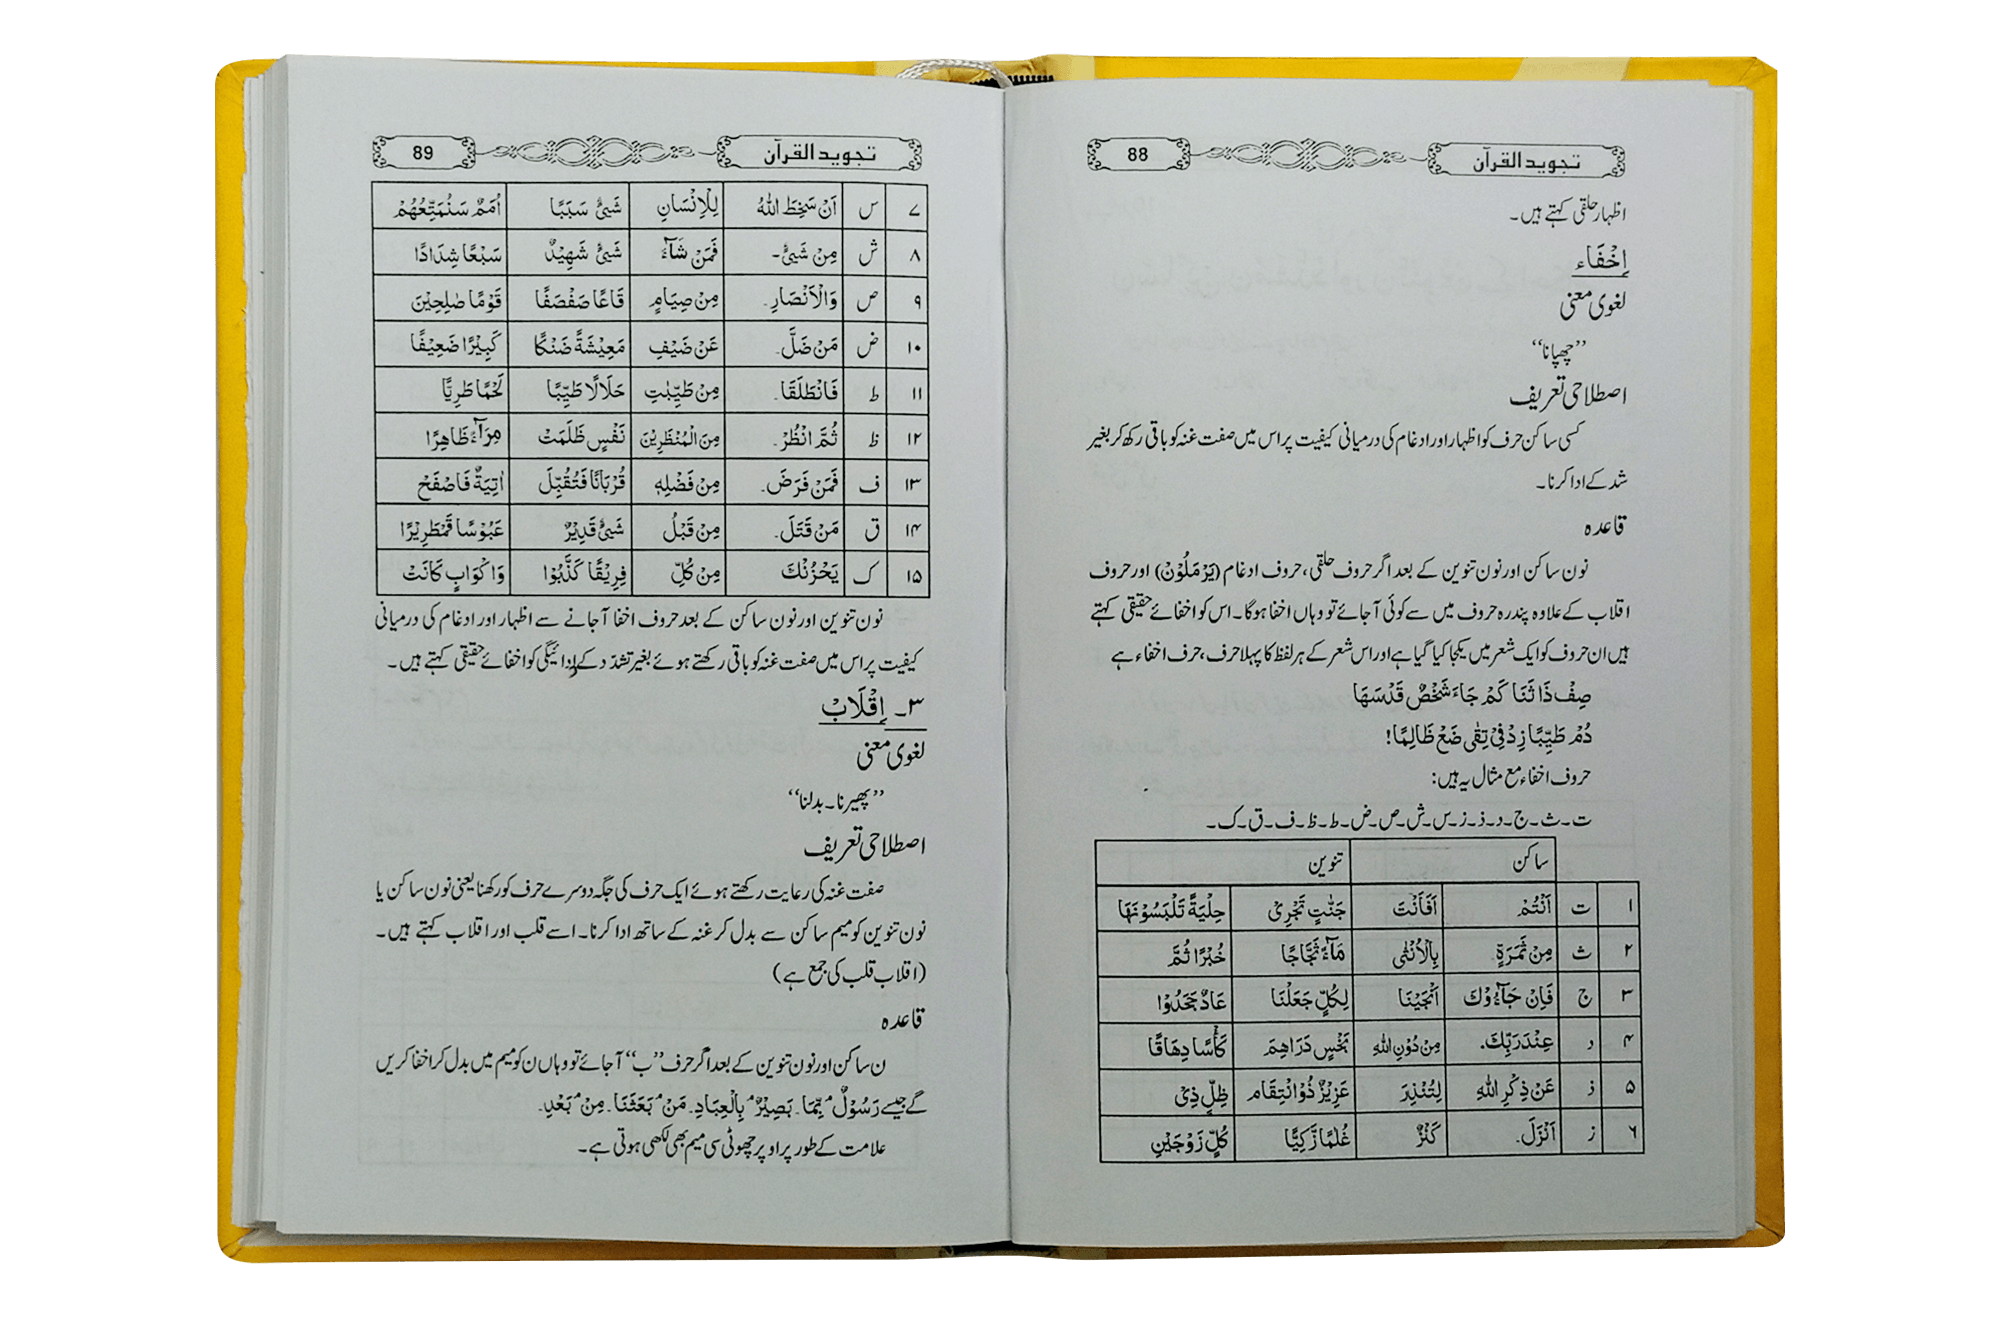 تجوید القرآن 88
اظہار حلقی کہتے ہیں۔
إِخْفَاء
لغوی معنی
”چھپانا“
اصطلاحی تعریف
کسی ساکن حرف کو اظہار اور ادغام کی درمیانی کیفیت پر اس میں صفت غنہ کو باقی رکھ کر بغیر
شد کے ادا کرنا۔
قاعدہ
نون ساکن اور نون تنوین کے بعد اگر حروف حلقی، حروف ادغام (یَرْمَلُوْنَ) اور حروف
اقلاب کے علاوہ پندرہ حروف میں سے کوئی آجائے تو وہاں اخفا ہوگا۔ اس کو اخفائے حقیقی کہتے
ہیں ان حروف کو ایک شعر میں یکجا کیا گیا ہے اور اس شعر کے ہر لفظ کا پہلا حرف، حرف اخفاء ہے
صِفْ ذَا ثَنَا كَمْ جَاءَ شَخْصٌ قَدْ سَهَا
دُمْ طَيِّبًا زِدْ فِيْ تُقٰى ضَعْ ظَالِمًا!
حروف اخفاء مع مثال یہ ہیں:
ت۔ث۔ج۔د۔ذ۔ز۔س۔ش۔ص۔ض۔ط۔ظ۔ف۔ق۔ک۔
ساکن تنوین
۱ ت اَنْتُمْ اَفَاَنْتَ جَنّٰتٍ تَجْرِیْ حِلْيَةً تَلْبَسُوْنَهَا
۲ ث مِنْ ثَمَرَةٍ۔ بِالْاُنْثٰی مَآءً ثَجَّاجًا خُبْرًا ثُمَّ
۳ ج فَاِنْ جَآءُوْكَ اَنْجَيْنَا لِكُلٍّ جَعَلْنَا عَادٌ جَحَدُوْا
۴ د عِنْدَ رَبِّكَ۔ مِنْ دُوْنِ اللهِ بَخْسٍ دَرَاهِمَ كَأْسًا دِهَاقًا
۵ ذ عَنْ ذِكْرِ اللهِ لِتُنْذِرَ عَزِيْزٌ ذُو انْتِقَام ظِلٍّ ذِیْ
۶ ز اَنْزَلَ۔ كَنْزٌ غُلٰمًا زَكِيًّا كُلٍّ زَوْجَيْنِ
تجوید القرآن 89
۷ س اَنْ سَخِطَ اللهُ لِلْاِنْسَانِ شَیْءٍ سَبَبًا اُمَمٌ سَنُمَتِّعُهُمْ
۸ ش مِنْ شَیْءٍ۔ فَمَنْ شَآءَ شَیْءٍ شَهِيْدٌ سَبْعًا شِدَادًا
۹ ص وَالْاَنْصَارِ۔ مِنْ صِيَامٍ قَاعًا صَفْصَفًا قَوْمًا صٰلِحِيْنَ
۱۰ ض مَنْ ضَلَّ۔ عَنْ ضَيْفِ مَعِيْشَةً ضَنْكًا كَبِيْرًا ضَعِيْفًا
۱۱ ط فَانْطَلَقَا۔ مِنْ طَيِّبٰتِ حَلَالًا طَيِّبًا لَحْمًا طَرِيًّا
۱۲ ظ ثُمَّ انْظُرْ۔ مِنَ الْمُنْظَرِيْنَ نَفْسٍ ظَلَمَتْ مِرَآءً ظَاهِرًا
۱۳ ف فَمَنْ فَرَضَ۔ مِنْ فَضْلِهٖ قُرْبَانًا فَتُقُبِّلَ اٰتِيَةٌ فَاصْفَحْ
۱۴ ق مَنْ قَتَلَ۔ مِنْ قَبْلُ شَیْءٍ قَدِيْرٌ عَبُوْسًا قَمْطَرِيْرًا
۱۵ ک يَحْزُنْكَ مِنْ كُلِّ فِرِيْقًا كَذَّبُوْا وَاَكْوَابٍ كَانَتْ
نون تنوین اور نون ساکن کے بعد حروف اخفا آجانے سے اظہار اور ادغام کی درمیانی
کیفیت پر اس میں صفت غنہ کو باقی رکھتے ہوئے بغیر تشدد کے ادائیگی کو اخفائے حقیقی کہتے ہیں۔
۳۔ إِقْلَابْ
لغوی معنی
”پھیرنا۔ بدلنا“
اصطلاحی تعریف
صفت غنہ کی رعایت رکھتے ہوئے ایک حرف کی جگہ دوسرے حرف کو رکھنا یعنی نون ساکن یا
نون تنوین کو میم ساکن سے بدل کر غنہ کے ساتھ ادا کرنا۔ اسے قلب اور اقلاب کہتے ہیں۔
(اقلاب قلب کی جمع ہے)
قاعدہ
ن ساکن اور نون تنوین کے بعد اگر حرف ”ب“ آجائے تو وہاں ن کو میم میں بدل کر اخفا کریں
گے جیسے رَسُوْلٌۢ بِمَا۔ بَصِيْرٌۢ بِالْعِبَادِ۔ مَنْۢ بَعَثَنَا۔ مِنْۢ بَعْدِ۔
علامت کے طور پر اوپر چھوٹی سی میم بھی لکھی ہوتی ہے۔